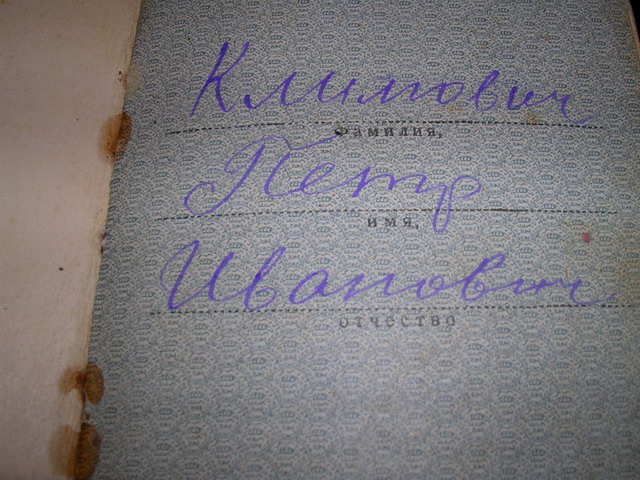 Климович
фамилия,
Петр
имя,
Иванович
отчество